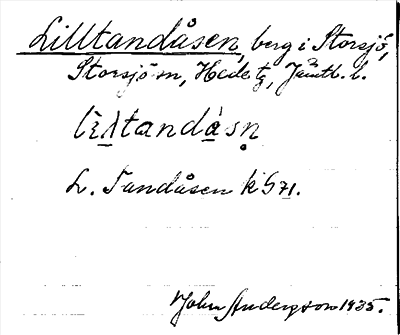 Lilltandåsen, berg i Storsjö,
Storsjö sn, Hede tg, Jämtl. l.
L. Tandåsen k 571.
John Anderson 1935.